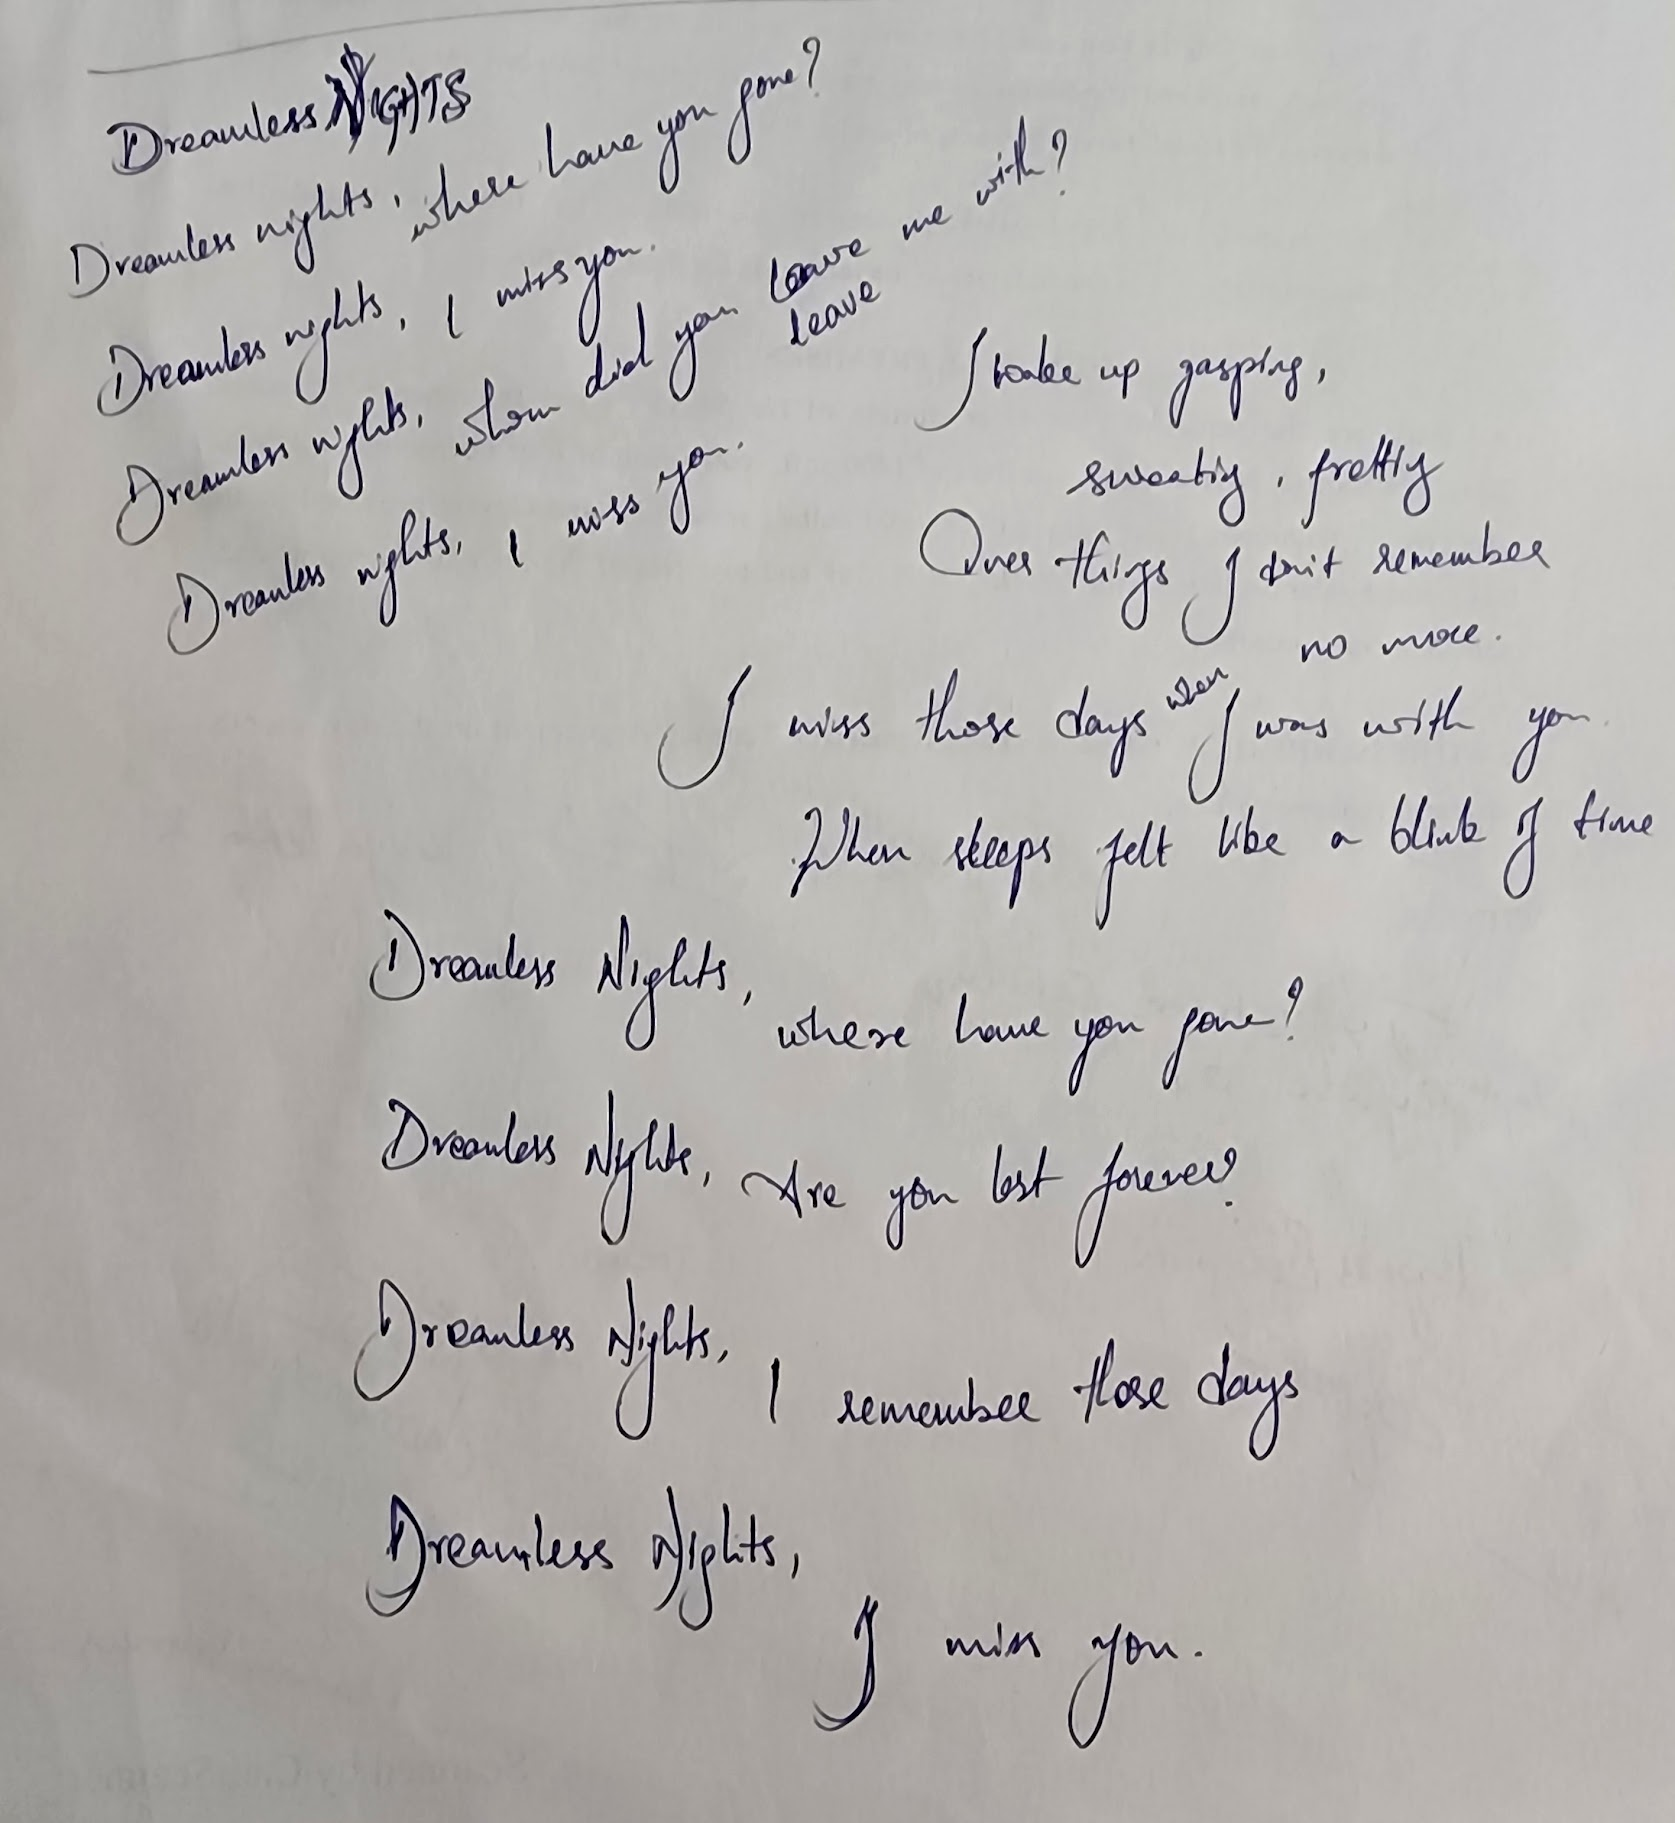 Dreamless NIGHTS
Dreamless nights, where have you gone?
Dreamless nights, I miss you.
Dreamless nights, whom did you leave me with?
leave
Dreamless nights, I miss you.
I wake up gasping,
sweating, fretting
Over things I don't remember
no more.
I miss those days when I was with you.
When sleeps felt like a blink of time
Dreamless Nights,
where have you gone?
Dreamless Nights, Are you lost forever?
Dreamless Nights,
I remember those days
Dreamless Nights,
I miss you.